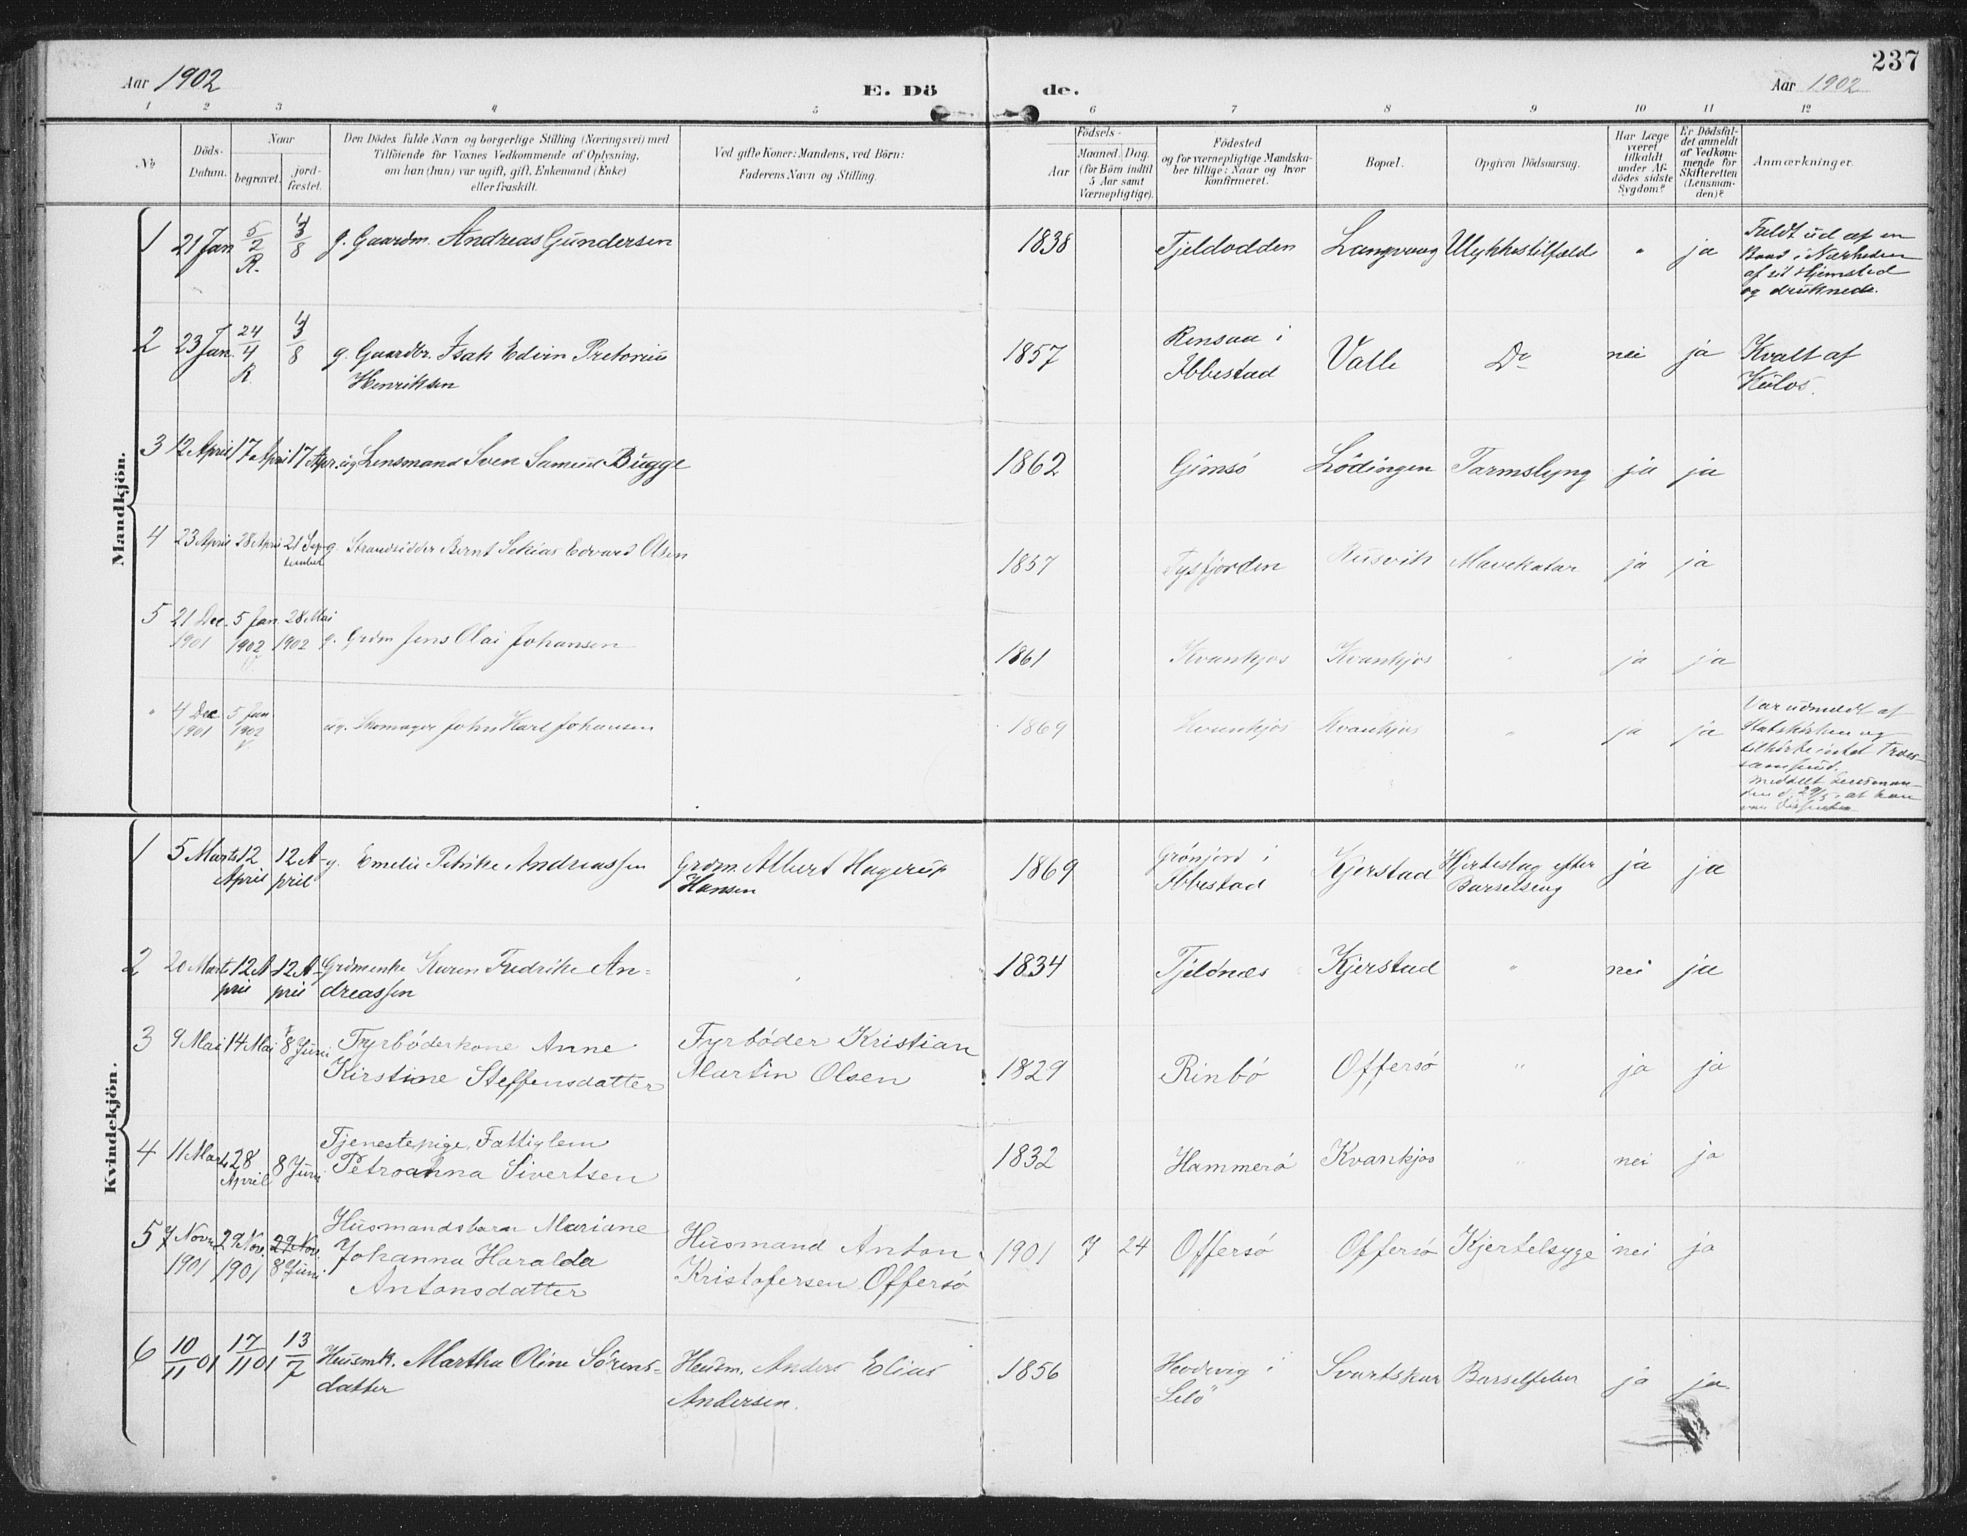 237
Aar 1902
E. Dö de.
Aar 1902
1 2 3 4 5 6 7 8 9 10 11 12
No
Döds-Datum.
Naar
begravet.
jordfæstet.
Den Dödes fulde Navn og borgerlige Stilling (Næringsvei) med
Tilföiende for Voxnes Vedkommende af Oplysning,
om han (hun) var ugift, gift, Enkemand (Enke)
eller fraskilt.
Ved gifte Koner: Mandens, ved Börn:
Faderens Navn og Stilling.
Födsels-
Aar
Maaned. Dag.
(for Börn indtil
5 Aar samt
Værnepligtige).
Födested
og for værnepligtige Mandska-
ber tillige: Naar og hvor
konfirmeret.
Bopæl.
Opgiven Dödsaarsag.
Har Læge
været
tilkaldt
under Af-
dödes sidste
Sygdom?
Er Dödsfal-
det anmeldt
af Vedkom-
mende for
Skifteretten
(Lensman-
den)?
Anmærkninger.
Mandkjön.
1 21 Jan 5/2 R. 4/3 8 g. Gaardm. Andreas Gundersen 1838 Tjeldodden Langvaag Ulykkestilfælde " ja Faldt ud af en
Baad i Nærheden
af sit Hjemsted
og druknede.
2 23 Jan. 24/4 R. 4/3 8 g. Gaardbr. Isak Edvin Pretorius
Henriksen 1857 Rensaa i
Ibbestad Valle Do nei ja Kvalt af
Kulos.
3 12 April 17 April 17 Apr. ug Lensmand Sven Samuel Bugge 1862 Gimsö Lödingen Tarmslyng ja ja
4 23 April 28 April 21 Sep-
tember g. Strandsidder Bernt Sekias Edvard Olsen 1857 Tysfjorden Rusvik Mavekatar ja ja
5 21 Dec.
1901 5 Jan
1902 28 Mai
1902 g. Grdm Jens Olai Johansen 1861 Kvankjos Kvankjos " ja ja
" 4 Dec
1901 5 Jan
1902 ug. Skomager John Karl Johansen 1869 Kvankjos Kvankjos " ja ja Var udmeldt af
Statskirken og
tilhörte intet Troes-
samfund.
Meddelt Lensman-
den d. 29/5, at han
var Dissenter
Kvindekjön.
1 5 Marts 12
April 12 A-
pril g. Emelie Petrike Andreassen Grdm. Albert Hagerup
Hansen 1869 Grönjord i
Ibbestad Kjerstad Hjerteslag efter
Barselseng ja ja
2 20 Marts 12 A-
pril 12 A-
pril Grdmenke Karen Fredrike An-
dreassen 1834 Tjeldnæs Kjerstad " nei ja
3 9 Mai 14 Mai 8 Juni Fyrböderkone Anne
Kirstine Steffensdatter Fyrböder Kristian
Martin Olsen 1829 Rinbö Offersö " ja ja
4 11 Marts 28
April 8 Juni Tjenestepige, Fattiglem
Petroanna Sivertsen 1832 Hammerö Kvankjos " nei ja
5 7 Novr
1901 29 Nov.
1901 29 Nov.
8 Juni Husmandsbarn Mariane
Johanna Haralda
Antonsdatter Husmand Anton
Kristofersen Offersö 1901 7 24 Offersö Offersö Kjertelsyge nei ja
6 10/11 01 17/11 01 13/7 Husmk. Martha Oline Sörens-
datter Husm. Anders Elias
Andersen. 1856 i Svartskar Barselfeber ja ja.